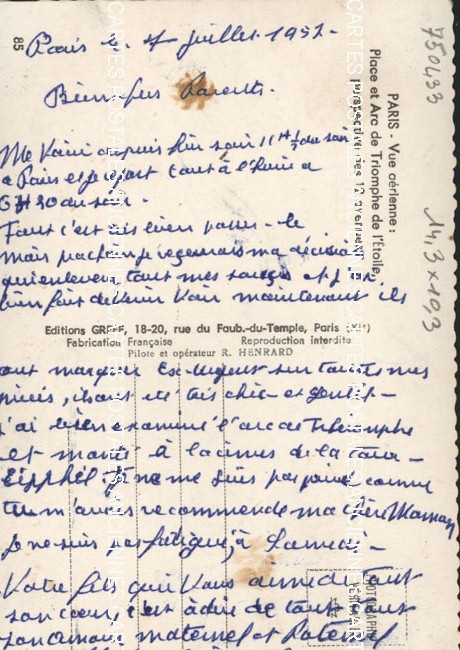 Paris le 4 juillet 1951.
Bien chers Parents.
Me voici depuis hier soir 11H ½ du soir
a Paris et je repart tout à l'heure a
6H30 du soir.
Tout c'est très bien passé le
mais prochain je reçevrais ma décision
qui enlevera tout mes soucis et j'ai
bien fait de venir voir maintenant ils
ont marqué Ex-Urgent sur toutes mes
pièces, ils ont été très chic et gentil -
j'ai bien examiné l'arc de Triomphe
et monté à la cimes de la tour
Eipphel je ne me suis pas comme
tu m'avais recommendé ma chère Maman
je ne suis pas fatigué, à Samedi -
Votre fils qui vous aime de tout
son cœur c'est à dire de tout
son amour maternel et Paternel
PARIS - Vue aérienne :
Place et Arc de Triomphe de l'Etoile,
perspective des 12 avenues
85
Editions GREFF, 18-20, rue du Faub.-du-Temple, Paris (XIe)
Fabrication Française Reproduction interdite
Pilote et opérateur R. HENRARD
750433
14,3 x 10,3